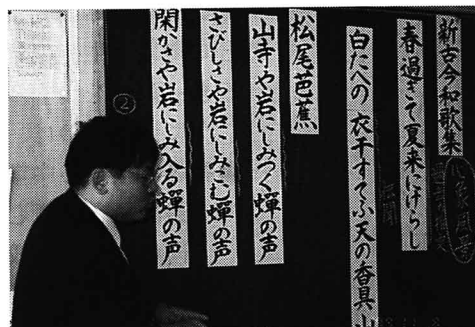 新古今和歌集
春過ぎて夏来にけらし
白たへの 衣干すてふ天の香具山
松尾芭蕉
山寺や岩にしみつく蟬の声
さびしさや岩にしみこむ蟬の声
閑かさや岩にしみ入る蟬の声
②